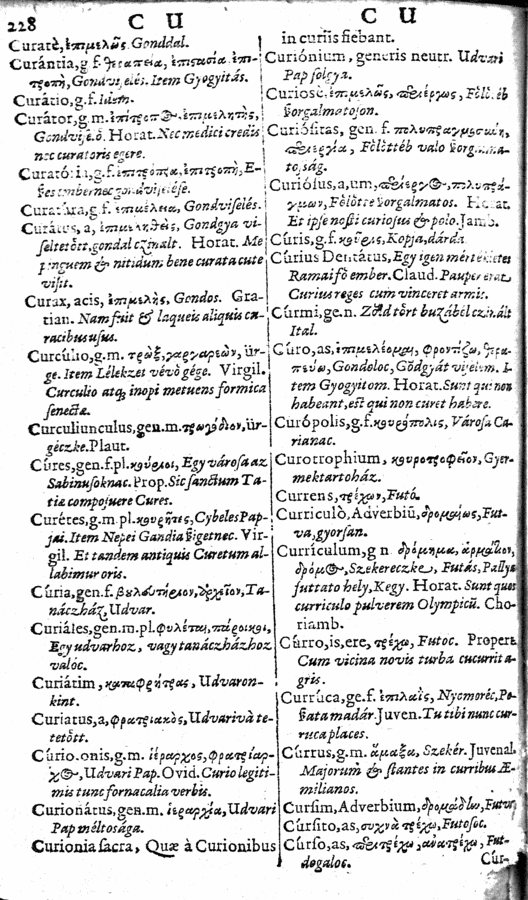 228
C U
C U
Curatè, ἐπιμελῶς. Gonddal.
Curántia, g.f. θεραπεία, ἐπιτροπὴ, Item Gyogyitás.
Curâtio, g.f. Idem.
Curâtor, g.m. ἐπίτροπος, ἐπιμελητὴς,
Horat. Nec medici credis
nec curatoris egere.
g.f. ἐπιτροπία, ἐπιτροπὴ,
g.f. ἐπιμέλεια, Gondviselés.
a, Gondgya vi-
seltetött, gondal Horat. Me
pinguem & nitidum bene curata cute
visit.
Curax, acis, ἐπιμελὴς, Gondos. Gra-
tian. Nam fuit & laqueis aliquis cu-
racibus usus.
Curcúlio, g.m. τρὼξ, γαργαρεὼν, ür-
ge. Item Lélekzet vévö gége. Virgil.
Curculio atq; inopi metuens formica
senectæ.
Curculiunculus, gen.m. ür-
géczke. Plaut.
Cúres, gen.f.pl. κούριοι, Egy városa az
Sabinusoknac. Prop. Sic sanctum Ta-
tiæ composuere Cures.
Curétes, g.m pl. κουρῆτες, Cybeles Pap-
jai. Item Nepei Gandia szigetnec. Vir-
gil. Et tandem antiquis Curetum al-
labimur oris.
Cúria, gen.f. βουλευτήριον, ἀρχεῖον, Ta-
náczház, Udvar.
Curiáles, gen.m.pl. φυλέται, πάροικοι,
Egy udvarhoz, vagy tanáczházhoz
valóc.
Curiátim, Udvaron-
kint.
Curiatus, a, φρατριακὸς, Udvarivà te-
tetött.
Cúrio. onis, g.m. ἱέραρχος, φρατρίαρ-
χος, Udvari Pap. Ovid. Curio legiti-
mis tunc fornacalia verbis.
Curionátus, gen.m. ἱεραρχία, Udvari
Pap méltosága.
Curionia sacra, Quæ à Curionibus
in curiis fiebant.
Curiónium, generis neutr. Udvari
Pap
Curiosè, ἐπιμελῶς, περιέργως, Fölöttéb
szorgalmatoson.
Curiósitas, gen. f. πολυπραγμοσύνη,
περιεργία, Fölöttéb valo szorgalma-
tosság.
Curiósus, a, um, περίεργος, πολυπρά-
γμων, Fölötte szorgalmatos. Horat.
Et ipse nosti curiosus & polo. Jamb.
Cúris, g.f. Kopja, dárda
Cúrius Dentátus, Egy igen mértékletes
Ramai fö ember. Claud. Pauper erat
Curius reges cum vinceret armis.
Cúrmi, ge.n. Zöld tört buzábél czinált
Ital.
Cúro, as, ἐπιμελέομαι, φροντίζω, θερα-
πεύω, Gondoloc, Gödgyát viselem. I-
tem Gyogyitom. Horat. Sunt qui non
habeant, est qui non curet habere.
Curópolis, g.f. κουρόπολις, Városa Ca-
rianac.
Curotrophium, κουροτροφεῖον, Gyer-
mektartoház.
Currens, τρέχων, Futó.
Curriculò, Adverbiũ, δρομαίως, Fut-
va, gyorsan.
Currículum, g n. δρόμημα, ἁρμάτιον,
δρόμος, Szekereczke, Futás, Pallya
futtato hely, Kegy. Horat. Sunt quos
curriculo pulverem Olympicũ. Cho-
riamb.
Cúrro, is, ere, τρέχω, Futoc. Propert.
Cum vicina novis turba cucurrit a-
gris.
Currúca, ge.f. ἐπιλαῒς,
madár. Juven. Tu tibi nunc cur-
ruca places.
Cúrrus, g.m. ἅμαξα, Szekér. Juvenal.
Majorum & stantes in curribus Æ-
milianos.
Cursim, Adverbium, δρομάδην, Futva
Cúrsito, as, συχνὰ τρέχω, Futosoc.
Cúrso, as, περιτρέχω, ἀνατρέχω, Fut-
dogaloc.
Cúr-